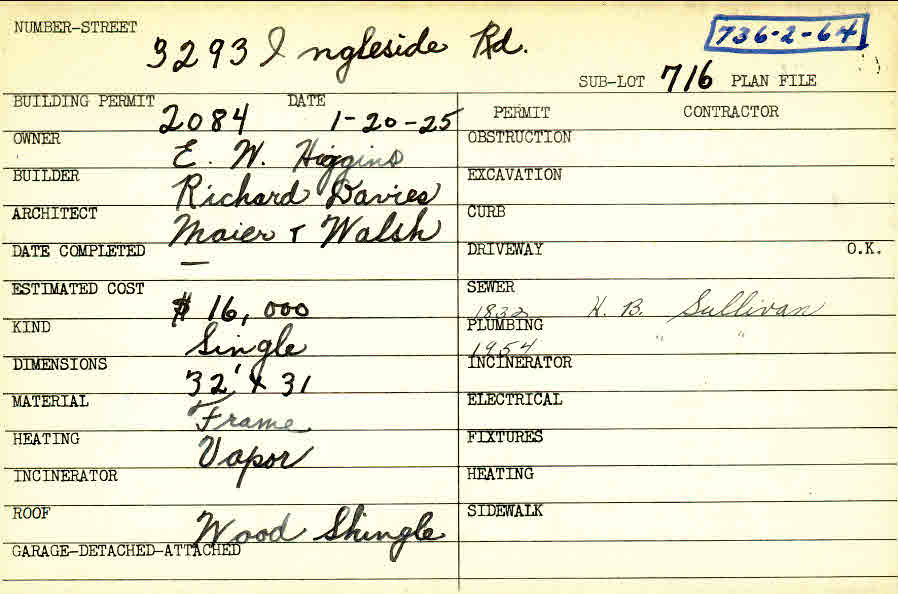 NUMBER-STREET 3293 Ingleside Rd. 736-2-64
SUB-LOT 716 PLAN FILE
BUILDING PERMIT 2084 DATE 1-20-25
OWNER E. W. Higgins
BUILDER Richard Davies
ARCHITECT Maier + Walsh
DATE COMPLETED —
ESTIMATED COST $16,000
KIND Single
DIMENSIONS 32' x 31
MATERIAL Frame
HEATING Vapor
INCINERATOR
ROOF Wood Shingle
GARAGE-DETACHED-ATTACHED
PERMIT CONTRACTOR
OBSTRUCTION
EXCAVATION
CURB
DRIVEWAY O.K.
SEWER 1832 H. B. Sullivan
PLUMBING 1954 " "
INCINERATOR
ELECTRICAL
FIXTURES
HEATING
SIDEWALK